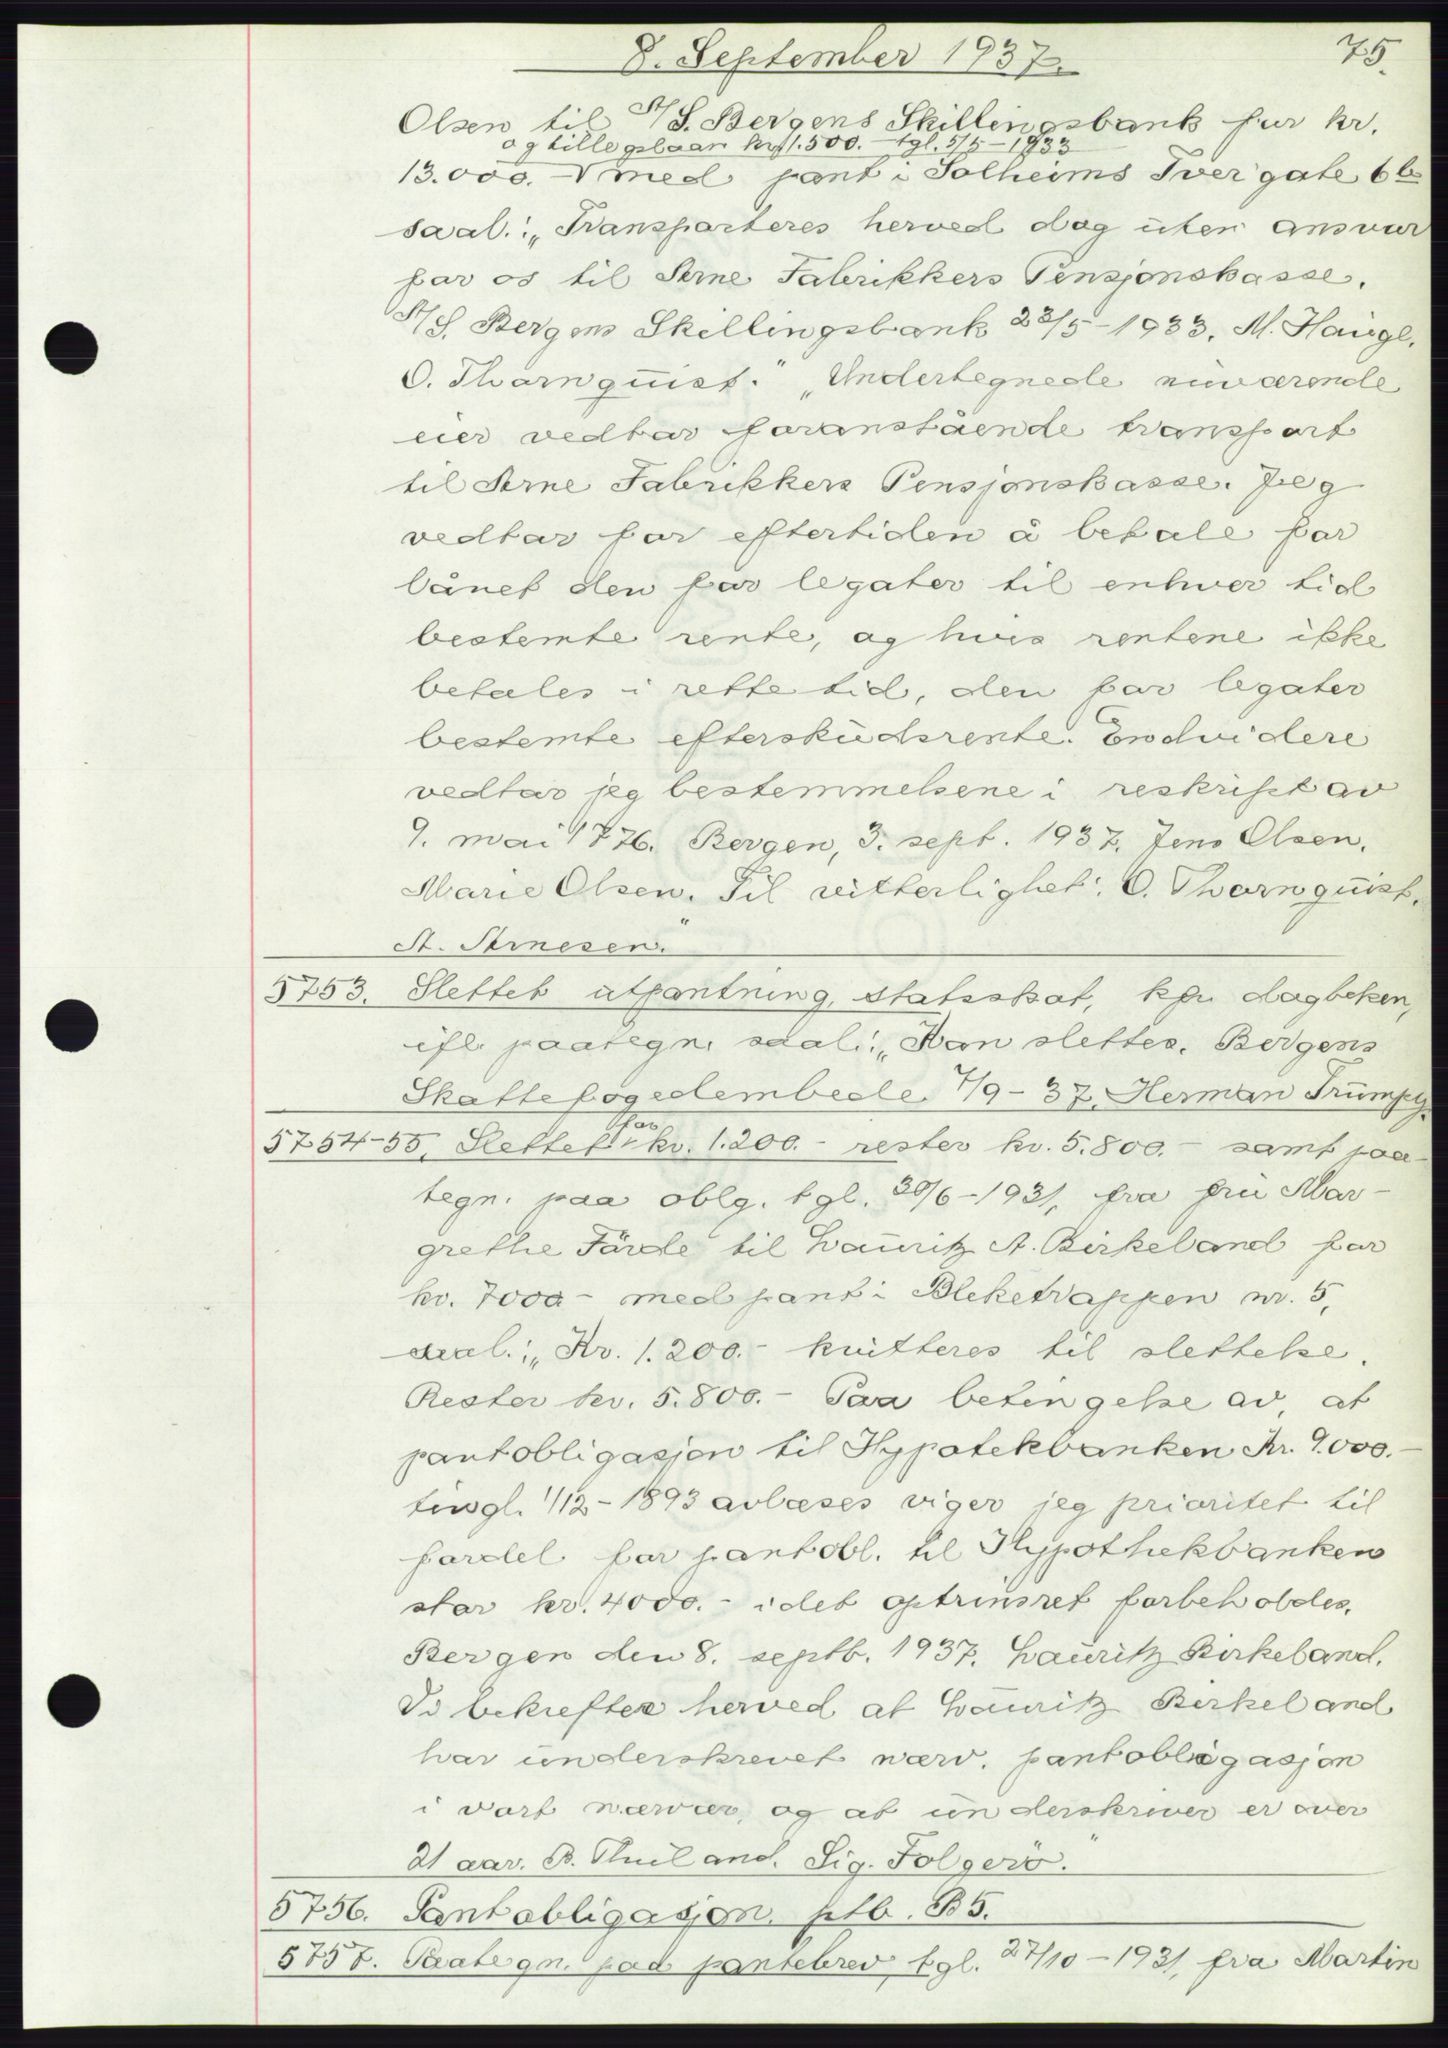 8. September 1937.
75.
Olsen til A/S. Bergens Skillingsbank for kr.
og tillegslaan kr. 1.500.- tgl. 5/5-1933
13.000.- V med pant i Solheims Tvergate 6b
saal.: „Transporteres herved dog uten ansvar
for os til Arne Fabrikkers Pensjonskasse.
A/S. Bergens Skillingsbank 23/5-1933. M. Haugl.
O. Thornquist." „Undertegnede nuværende
eier vedtar foranstående transport
til Arne Fabrikkers Pensjonskasse. Jeg
vedtar for eftertiden å betale for
lånet den for legater til enhver tid
bestemte rente, og hvis rentene ikke
betales i rette tid, den for legater
bestemte efterskudsrente. Endvidere
vedtar jeg bestemmelsene i reskript av
9. mai 1776. Bergen, 3. sept. 1937. Jens Olsen.
Marie Olsen. Til vitterlighet: O. Thornquist.
A. Arnesen."
5753. Slettet utpantning, statsskat, kfr. dagboken,
ifl. paategn. saal.: „Kan slettes. Bergens
Skattefogedembede 7/9-37. Herman Trümpy.
for
5754-55. Slettet V kr. 1.200.- rester kr. 5.800.- samt paa-
tegn. paa oblg. tgl. 30/6-1931, fra fru Mar-
grethe Färde til Lauritz A. Birkeland for
kr. 7000.- med pant i Bleketrappen nr. 5,
saal.: „Kr. 1.200.- kvitteres til slettelse.
Rester kr. 5.800.- Paa betingelse av at
pantobligasjon til Hypotekbanken Kr. 9.000.-
tingl. 1/12-1893 avlæses viger jeg prioritet til
fordel for pantobl. til Hypothekbanken
stor kr. 4000.- idet optrinsret forbeholdes.
Bergen den 8. septb. 1937. Lauritz Birkeland.
Vi bekrefter herved at Lauritz Birkeland
har underskrevet nærv. pantobligasjon
i vort nærvær, og at underskriver er over
21 aar. B. Thuland. Sig. Folgerö."
5756. Pantobligasjon. ptb. B5.
5757. Paategn. paa pantebrev tgl. 27/10-1931, fra Martin